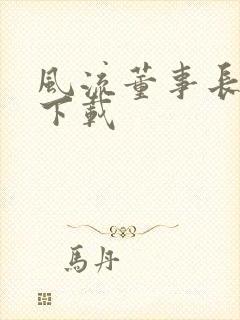 風流董事長
下載
馬丹